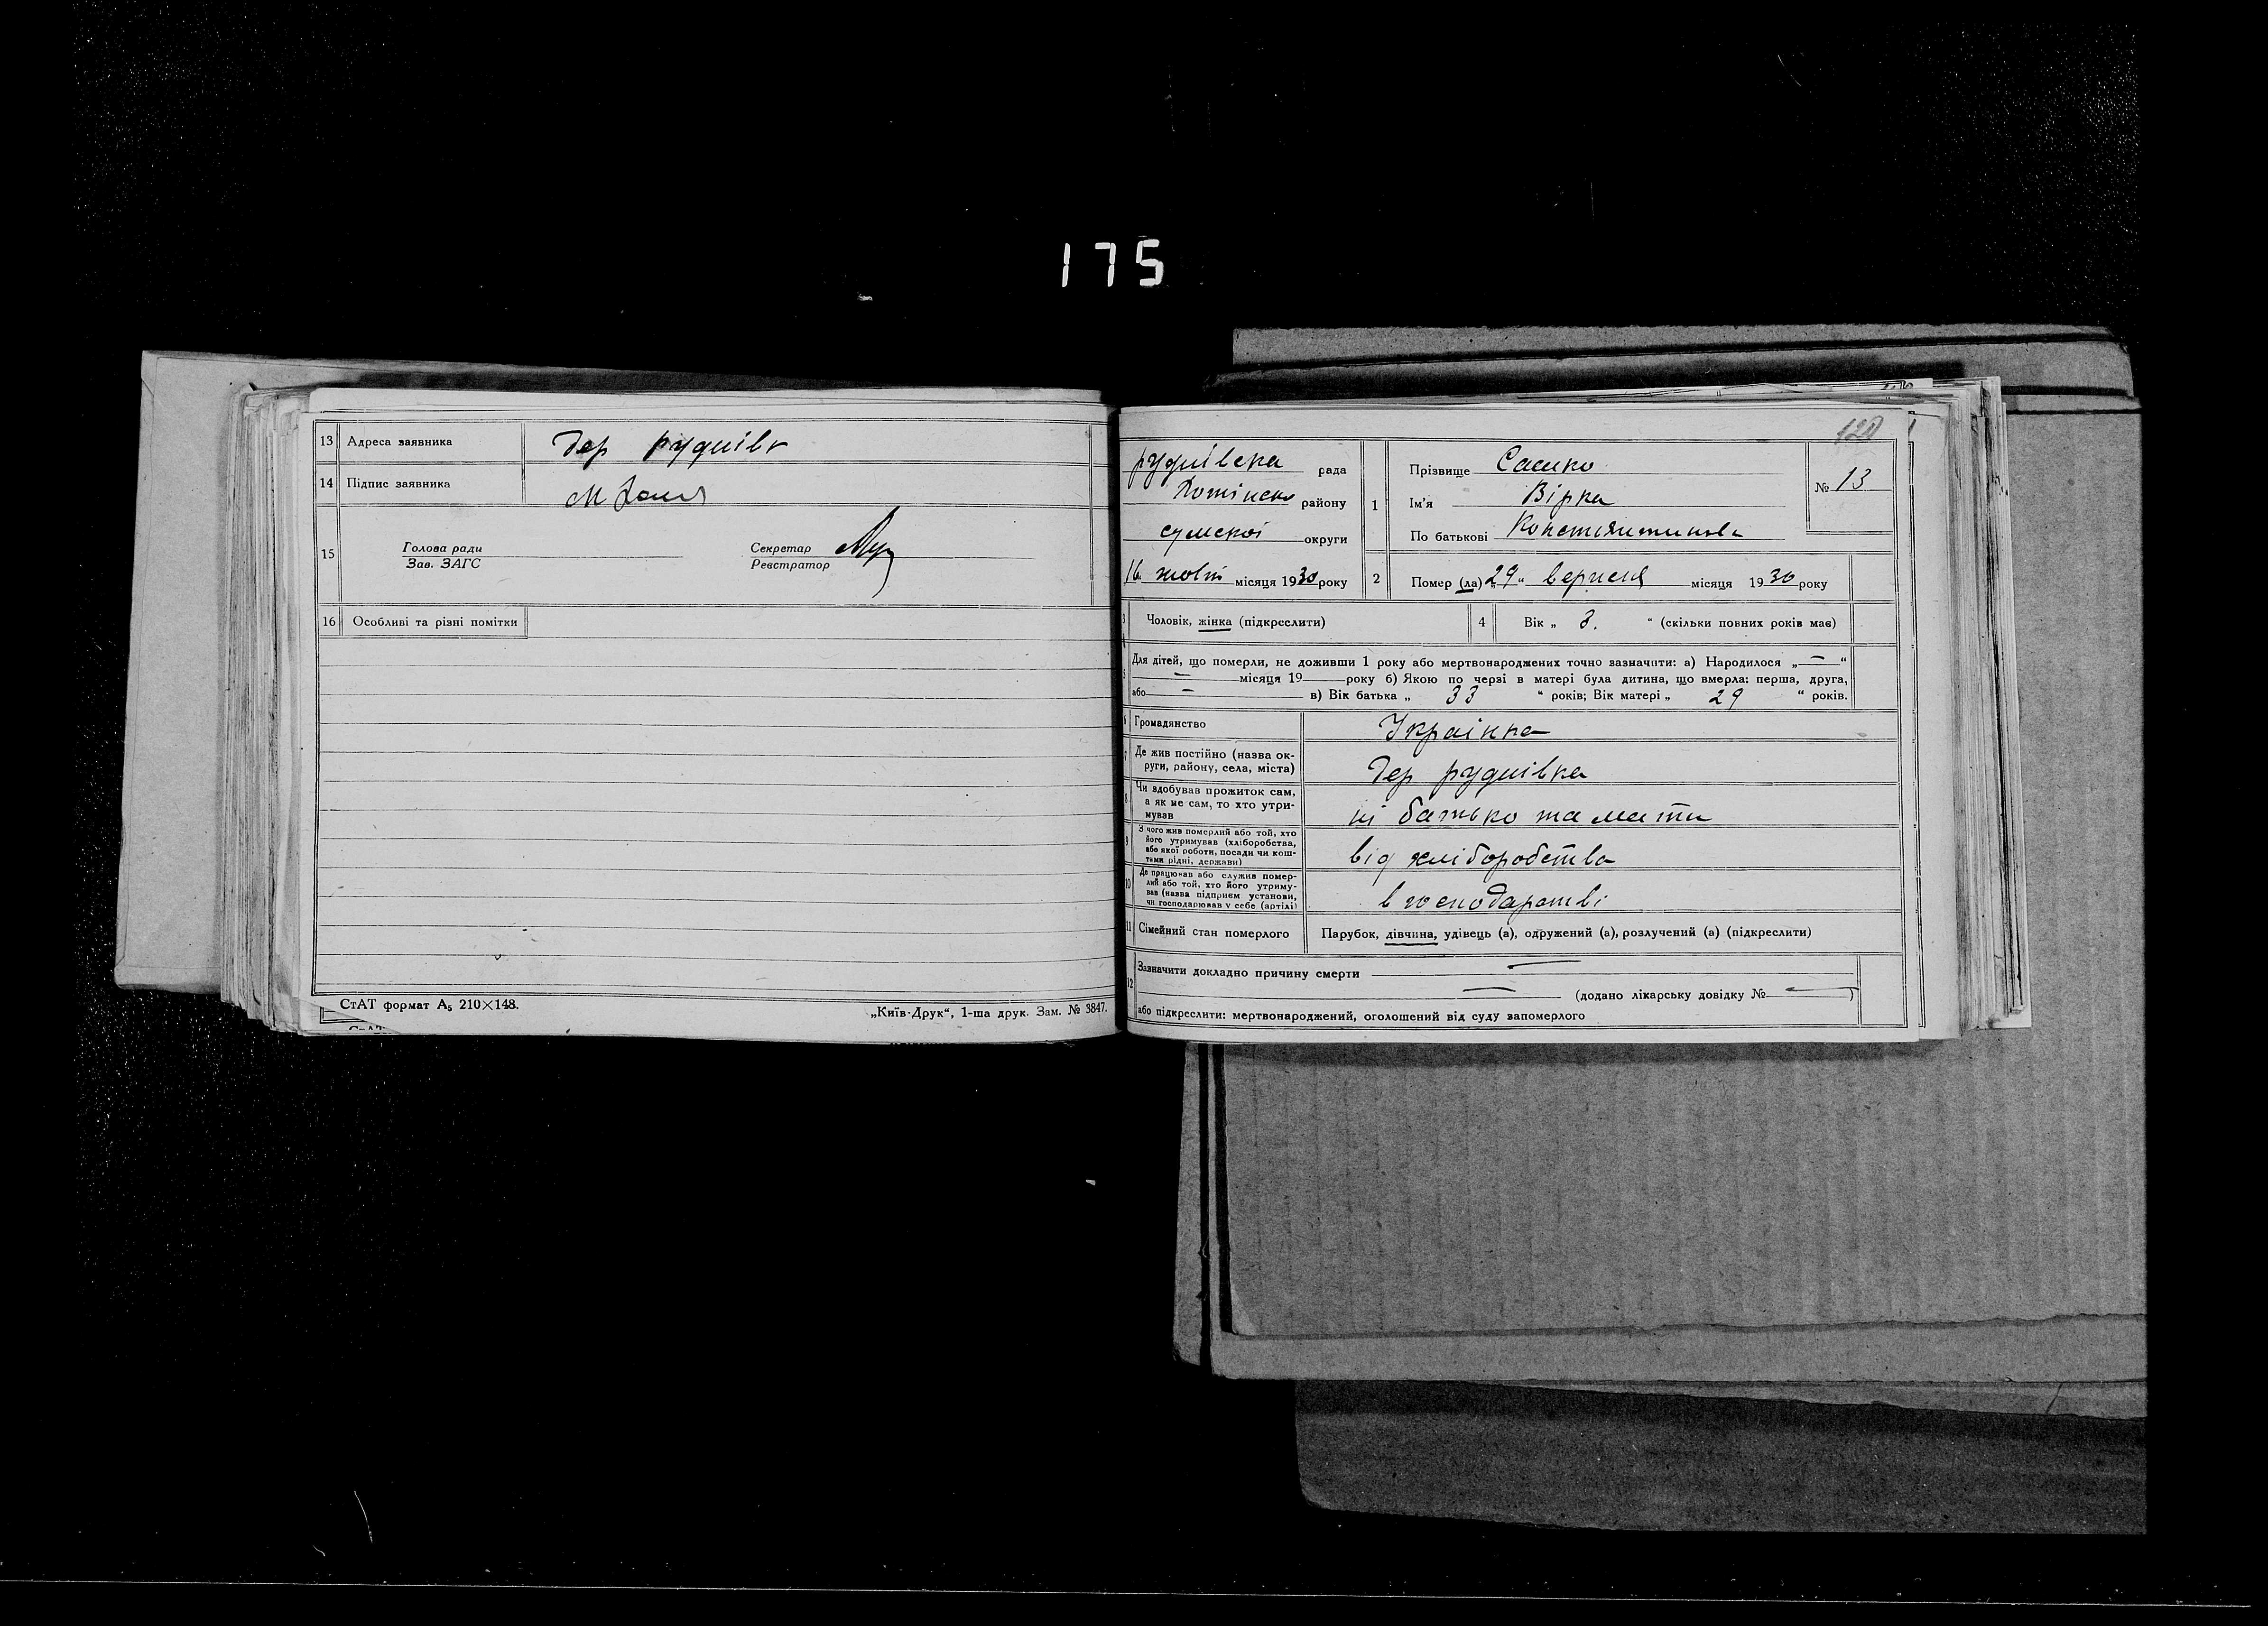 175
13 Адреса заявника дер руднівк
14 Підпис заявника
15 Голова ради
Зав. ЗАГС
Секретар
Реєстратор
16 Особливі та різні помітки
СтАТ формат А₅ 210×148.
„Київ-Друк“, 1-ша друк. Зам. № 3847.
120
руднівска рада
району
сумскої округи
16 жовтн місяця 1930 року
1 Прізвище Сасико
Ім'я Вірка
По батькові Констянтиновна
№ 13
2 Помер (ла) „29“ вересня місяця 1930 року
3 Чоловік, жінка (підкреслити)
4 Вік „ 3. “ (скільки повних років має)
5 Для дітей, що померли, не доживши 1 року або мертвонароджених точно зазначити: а) Народилося „—“
— місяця 19 року б) Якою по черзі в матері була дитина, що вмерла: перша, друга,
або — в) Вік батька „ 33 “ років; Вік матері „ 29 “ років.
6 Громадянство Украінка
7 Де жив постійно (назва округи, району, села, міста) дер руднівка
8 Чи здобував прожиток сам,
а як не сам, то хто утри-
мував
батько та мати
9 З чого жив померлий або той, хто
його утримував (хліборобства,
або якої роботи, посади чи кош-
тами рідні, держави)
від хліборобства
10 Де працював або служив помер-
лий або той, хто його утриму-
вав (назва підприєм установи,
чи господарював у себе (артілі)
в господарстві
11 Сімейний стан померлого Парубок, дівчина, удівець (а), одружений (а), розлучений (а) (підкреслити)
12 Зазначити докладно причину смерти —
— (додано лікарську довідку № —)
або підкреслити: мертвонароджений, оголошений від суду запомерлого